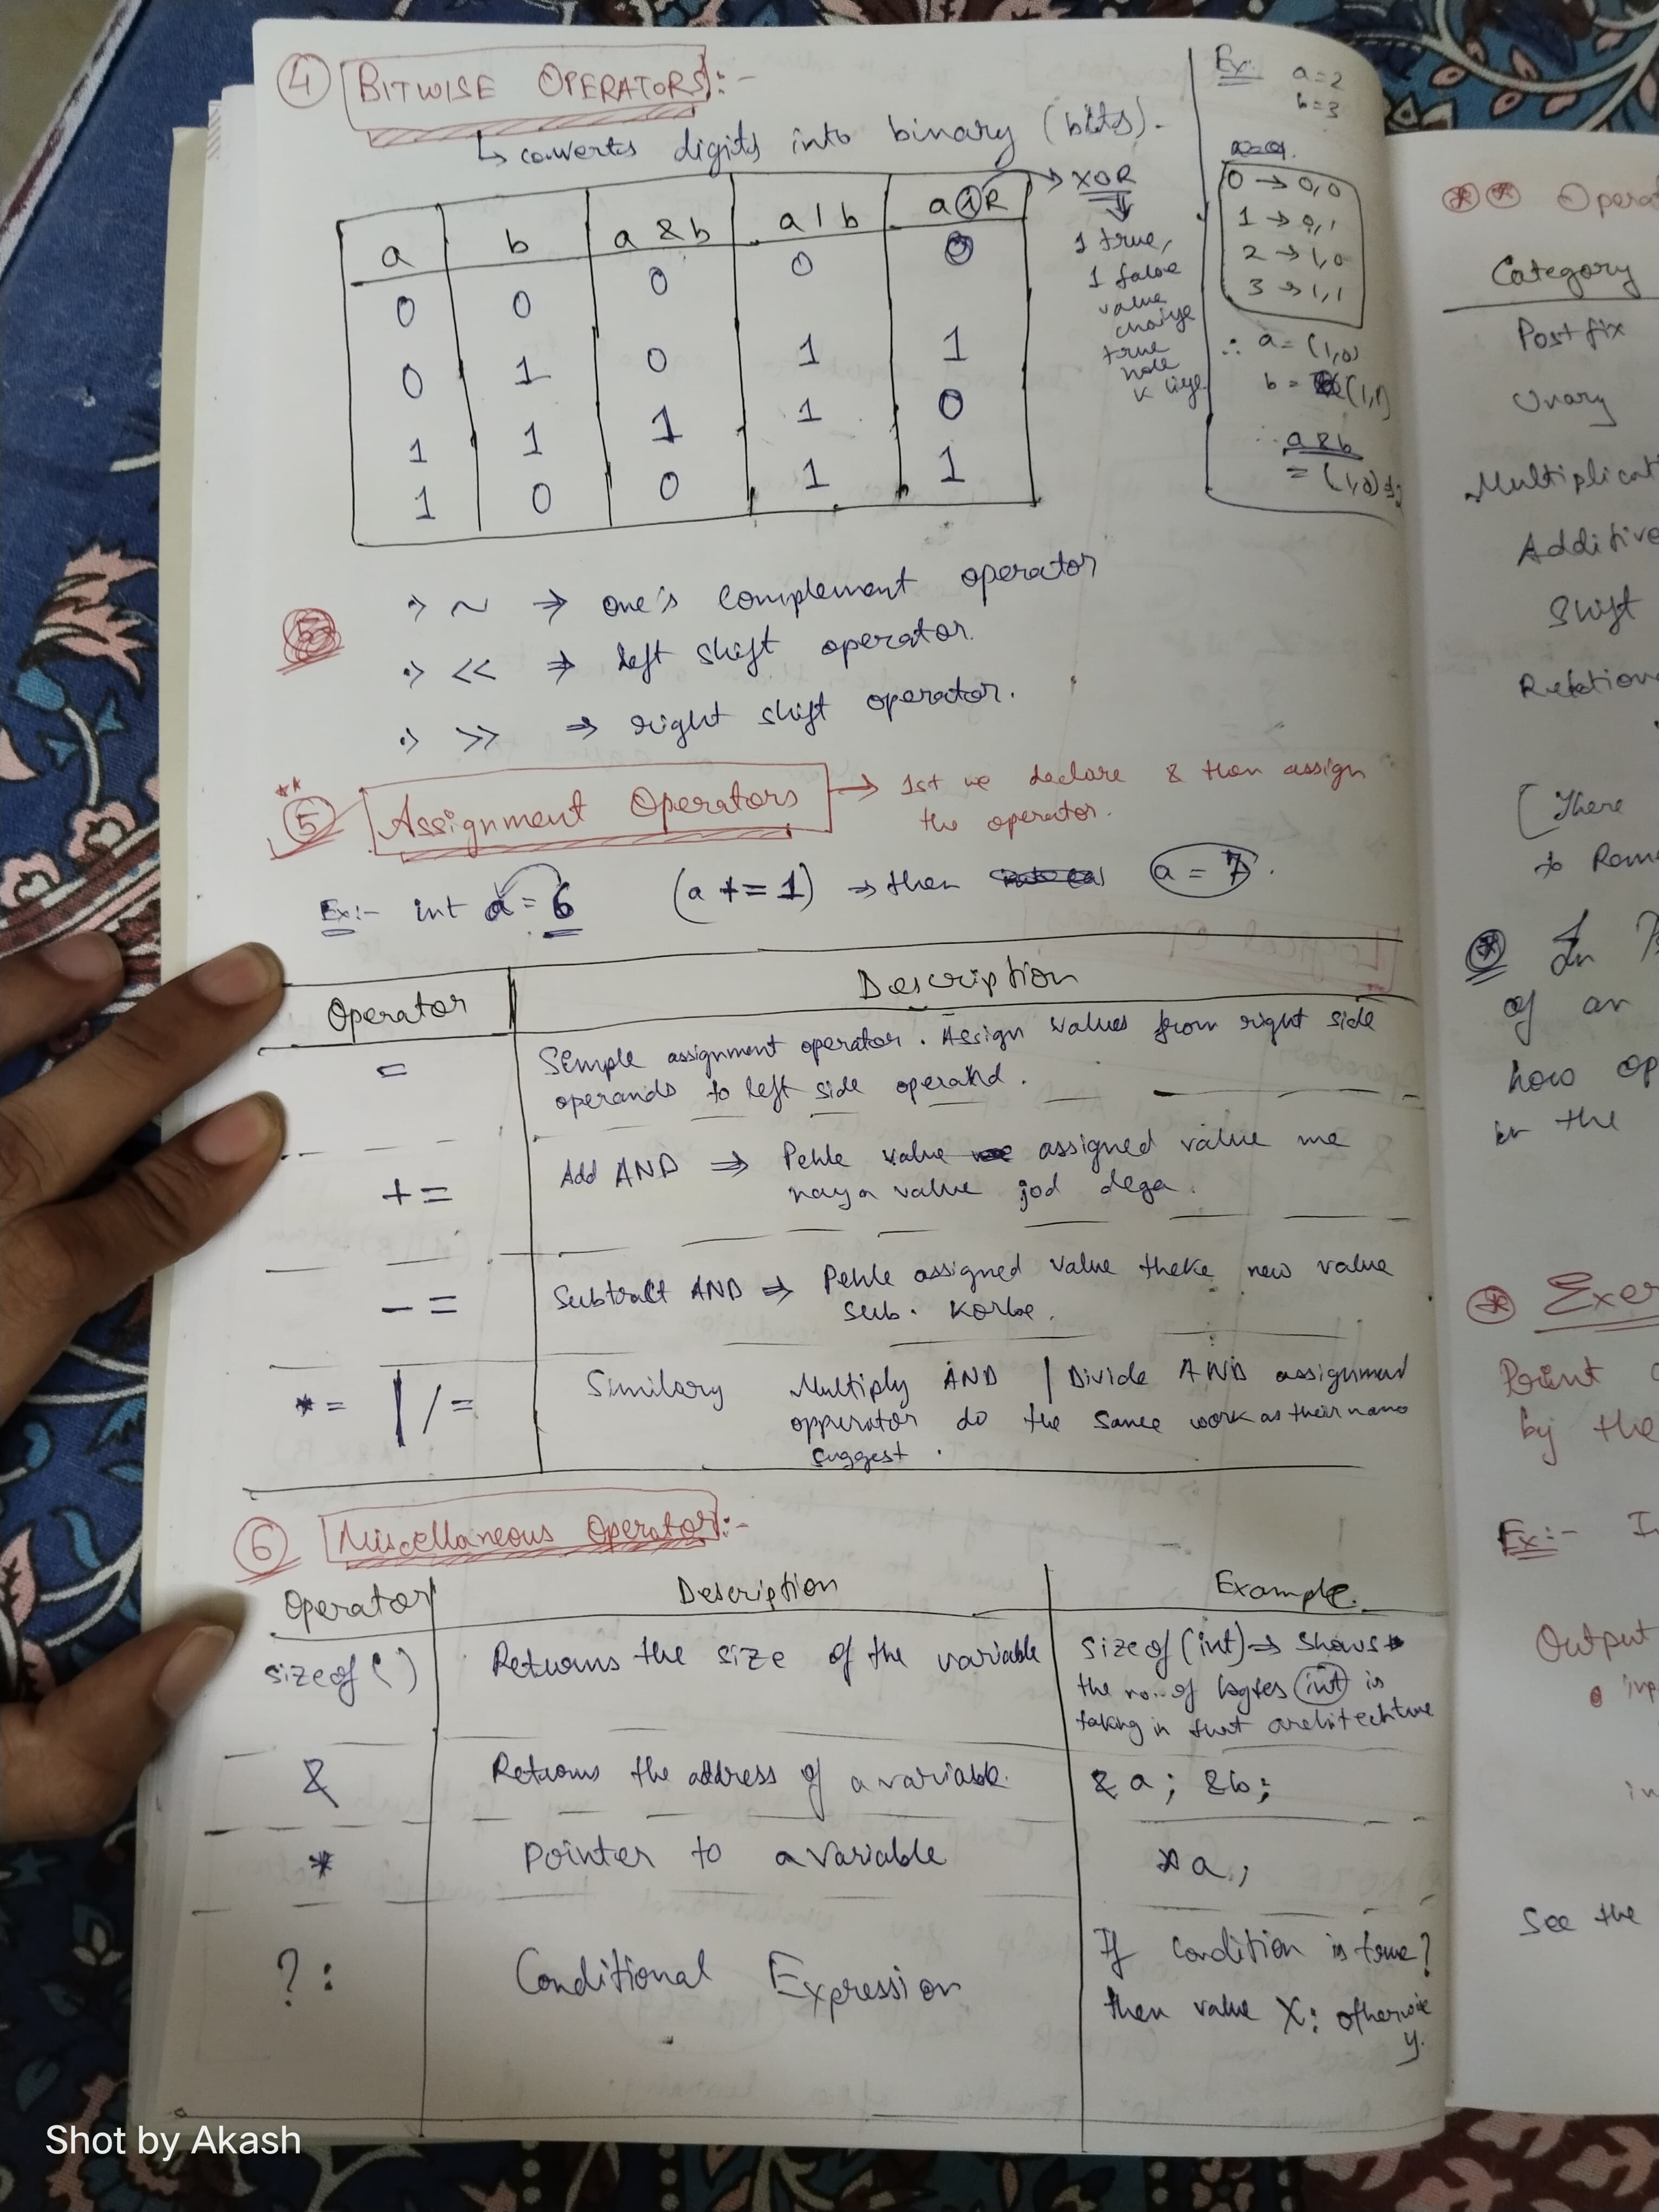 4 BITWISE OPERATORS:-
↳ converts digits into binary (bits).
a b a & b a | b a (i) R → XOR
0 0 0 0 0
0 1 0 1 1
1 1 1 1 0
1 0 0 1 1
1 true,
1 false
value
true
k liye.
Ex: a=2
b=3
0 → 0,0
1 → 0,1
2 → 1,0
3 → 1,1
∴ a = (1,0)
b = (1,1)
∴ a&b
= (1,0)
~ ⇒ one's complement operator
<< ⇒ left shift operator.
>> ⇒ right shift operator.
**
5 Assignment Operators → 1st we declare & then assign
the operator.
Ex:- int a = 6 (a += 1) → then a = 7.
Operator Description
= Simple assignment operator. Assign values from right side
operands to left side operand.
+= Add AND ⇒ Pehle value assigned value me
naya value jod dega.
-= Subtract AND ⇒ Pehle assigned value theke new value
sub. korbe.
*= | /= Similary Multiply AND / Divide AND assignment
opperator do the same work as their name
suggest.
6 Miscellaneous Operator:-
Operator Description Example.
sizeof() Returns the size of the variable sizeof(int) ⇒ shows
the no. of bytes int is
taking in that architechture
& Returns the address of a variable. &a; &b;
* Pointer to a variable *a;
?: Conditional Expression If condition is true?
then value X: otherwise
y.
** Operat
Category
Postfix
Unary
Multiplicat
Additive
Shift
Relation
(There
to Rem
In
of an
how op
in the
Exer
Print
by the
Ex:- I
Output
inp
in
See the
Shot by Akash